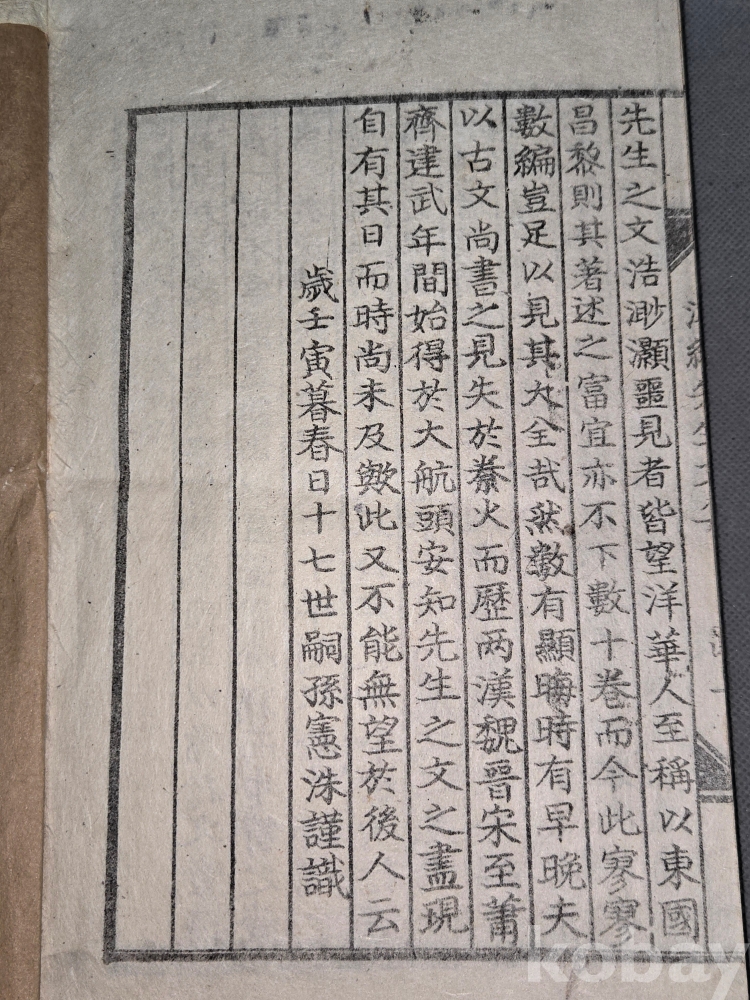 先生之文浩渺灝噩見者皆望洋華人至稱以東國
昌黎則其著述之富宜亦不下數十卷而今此寥寥
數編豈足以見其大全哉然數有顯晦時有早晚夫
以古文尚書之見失於秦火而歷两漢魏晉宋至蕭
齊建武年間始得於大航頭安知先生之文之盡現
自有其日而時尚未及歟此又不能無望於後人云
歲壬寅暮春日十七世嗣孫憲洙謹識
kobay